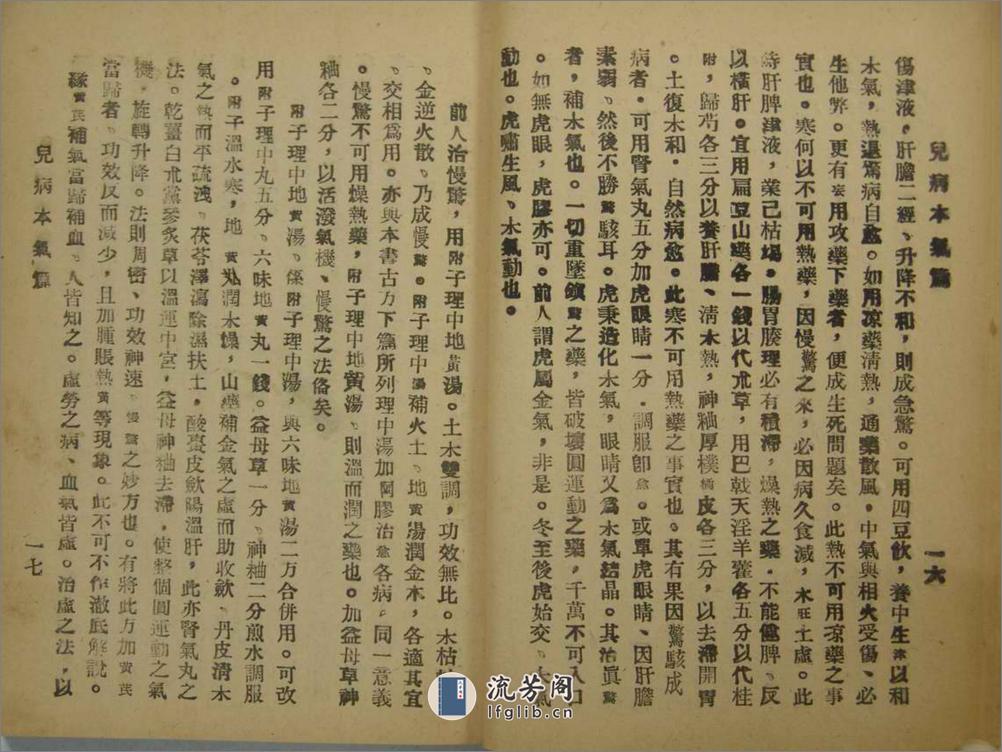 兒病本氣篇
一六
傷津液、肝膽二經、升降不和、則成急驚。可用四豆飲、養中生津以和
木氣、熱退驚病自愈。如用凉藥淸熱、通藥散風、中氣與相火受傷、必
生他弊。更有妄用攻藥下藥者、便成生死問題矣。此熱不可用凉藥之事
實也。寒何以不可用熱藥、因慢驚之來、必因病久食減、木旺土虛。此
時肝脾津液、業已枯竭。腸胃腠理必有積滯、燥熱之藥、不能健脾、反
以橫肝。宜用扁豆山藥各一錢以代朮草、用巴戟天淫羊藿各五分以代桂
附、歸芍各三分以養肝膽、淸木熱、神粬厚樸橘皮各三分、以去滯開胃
。土復木和、自然病愈。此寒不可用熱藥之事實也。其有果因驚駭成
病者、可用腎氣丸五分加虎眼睛一分、調服卽愈。或單虎眼睛、因肝膽
素弱、然後不勝驚駭耳。虎秉造化木氣、眼睛又爲木氣結晶。其治眞驚
者、補木氣也。一切重墜鎮驚之藥、皆破壞圓運動之藥、千萬不可入口
。如無虎眼、虎膠亦可。前人謂虎屬金氣、非是。冬至後虎始交、氣
動也。虎嘯生風、木氣動也。
前人治慢驚、用附子理中地黃湯。土木雙調、功效無比。木枯
、金逆火散、乃成慢驚。附子理中湯補火土、地黃湯潤金木、各適其宜
、交相爲用。亦與本書古方下篇所列理中湯加阿膠治愈各病、同一意義
。慢驚不可用燥熱藥、附子理中地黃湯、則溫而潤之藥也。加益母草神
粬各二分、以活潑氣機、慢驚之法備矣。
附子理中地黃湯、係附子理中湯、與六味地黃湯二方合併用。可改
用附子理中丸五分、六味地黃丸一錢。益母草一分、神粬二分煎水調服
。附子溫水寒、地黃丸潤木燥、山藥補金氣之虛而助收歛、丹皮淸木
氣之熱而平疏洩、茯苓澤瀉除濕扶土、酸棗皮歛陽溫肝、此亦腎氣丸之
法。乾薑白朮黨參炙草以溫運中宮、益母神粬去滯、使整個圓運動之氣
機、旋轉升降。法則周密、功效神速、慢驚之妙方也。有將此方加黃芪
當歸者、功效反而減少、且加腫脹熱黃等現象。此不可不作澈底解說。
緣黃芪補氣當歸補血、人皆知之。虛勞之病、血氣皆虛。治虛之法、以
兒病本氣篇
一七
流芳阁
lfglib.cn